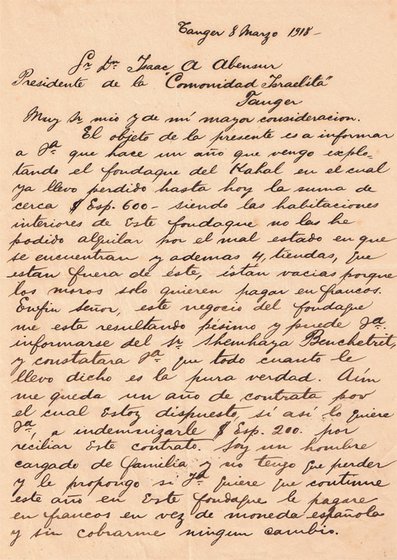 Tanger 8 Marzo 1918-
Sr Dn Isaac A Abensur
Presidente de la "Comunidad Israelita"
Tanger
Muy Sr mio y de mi mayor consideracion.
El objeto de la presente es a informar
a Vd que hace un año que vengo explo-
tando el fondaque del Kahal en el cual
ya llevo perdido hasta hoy la suma de
cerca $ Esp. 600- siendo las habitaciones
interiores de este fondaque no las he
podido alquilar por el mal estado en que
se encuentran y ademas 4, tiendas, que
estan fuera de éste, están vacias porque
los moros solo quieren pagar en francos.
Enfin Señor, este negocio del fondaque
me esta resultando pésimo y puede Vd.
informarse del Sr Shemhaya Benchetrit,
y constatara Vd que todo cuanto le
llevo dicho es la pura verdad. Aúm
me queda un año de contrata por
el cual Estoy dispuesto, si asi lo quiere
Vd, a indemnizarle $ Esp. 200. por
reciliar Este contrato. Soy un hombre
cargado de familia y no tengo que perder
y le propongo si Vd quiere que continue
este año en Este fondaque le pagare
en francos en vez de moneda española
y sin cobrarme ningun cambio.